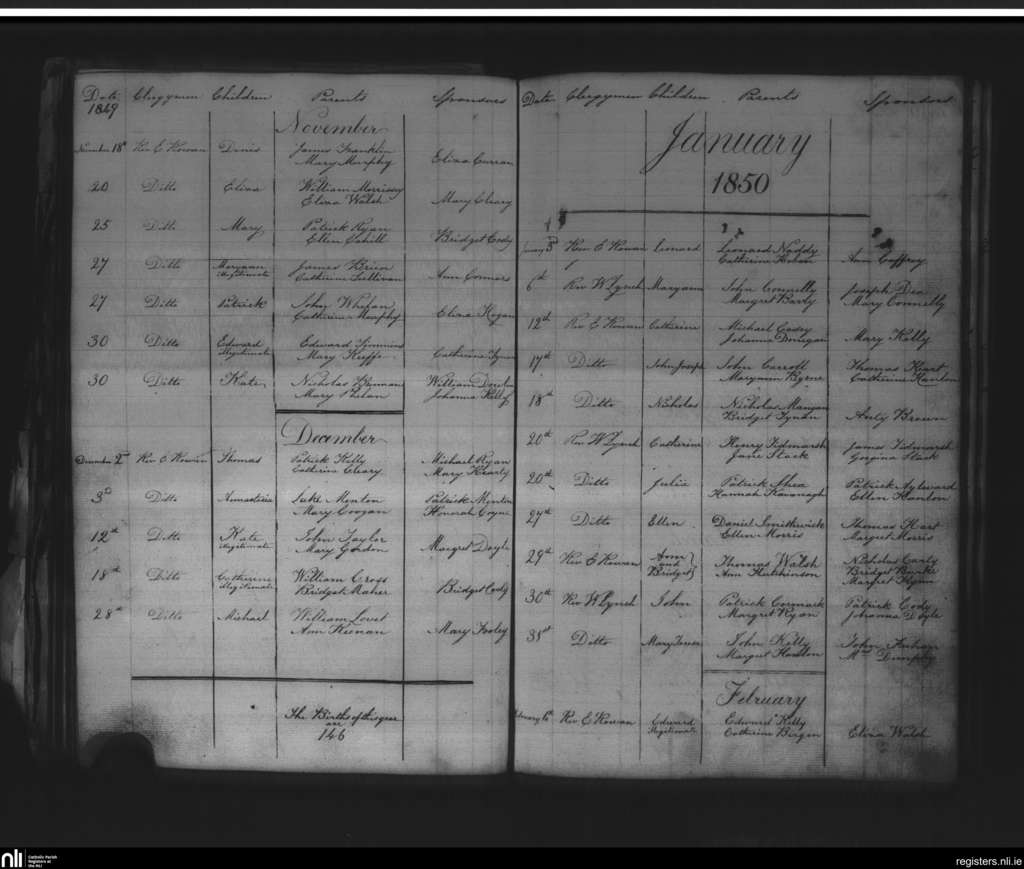 Date Clergymen Children Parents Sponsors
1849
November
November 18th Rev E Rowan Denis James Franklin Eliza Curran
Mary Murphy
20 Ditto Eliza William Morrissy Mary Cleary
Eliza Walsh
25 Ditto Mary Patrick Ryan Bridget Cody
Ellen Cahill
27 Ditto Maryann James Brien Ann Connors
Illegitimate Catherine Sullivan
27 Ditto Patrick John Whelan Eliza Hogan
Catherine Murphy
30 Ditto Edward Edward Symmins Catherine
Illegitimate Mary Keeffe
30 Ditto Kate Nicholas William
Mary Phelan Johanna Kelly
December
December 2nd Rev E Rowan Thomas Patrick Kelly Michael Ryan
Catherine Cleary Mary Hearly
3rd Ditto Annastatia Luke Menton Patrick Menton
Mary Coogan Honorah Coyne
12th Ditto Kate John Taylor Margret Doyle
Illegitimate Mary Gordon
18th Ditto Catherine William Cross Bridget Cody
Illegitimate Bridget Maher
28th Ditto Michael William Lovet Mary Fooley
Ann Keenan
The Births of this year
are
146
Date Clergymen Children Parents Sponsors
January
1850
January 3rd Rev E Rowan Leonard Leonard Noddy Ann Caffrey
Catherine Holan
6th Rev W Lynch Maryann John Connelly Joseph Dea
Margret Barly Mary Connelly
12th Rev E Rowan Catherine Michael Casey Mary Kelly
Johanna Donegan
17th Ditto John Joseph John Carroll Thomas Hart
Maryann Byrne Catherine Hanlon
18th Ditto Nicholas Nicholas Mangan Brown
Bridget Tynan
20th Rev W Lynch Catherine Henry Tidmarsh James Tidmarsh
Jane Stack Gorgina Stack
20th Ditto Julia Patrick Shea Patrick Aylward
Hannah Kavanagh Ellen Hanlon
27th Ditto Ellen Daniel Smithwick Thomas Hart
Ellen Morris Margret Morris
29th Rev E Rowan Ann Thomas Walsh Nicholas Carly
and Ann Hutchinson Bridget Burke
Bridget Margret Flynn
30th Rev W Lynch John Patrick Cormack Patrick Cody
Margret Ryan Johanna Doyle
31st Ditto Mary Teresa John Kelly John
Margret Hanlon Mrs Dunphy
February
February 6th Rev E Rowan Edward Edward Kelly Eliza Walsh
Illegitimate Catherine Bergin
nli
Catholic Parish
Registers at
the NLI
registers.nli.ie